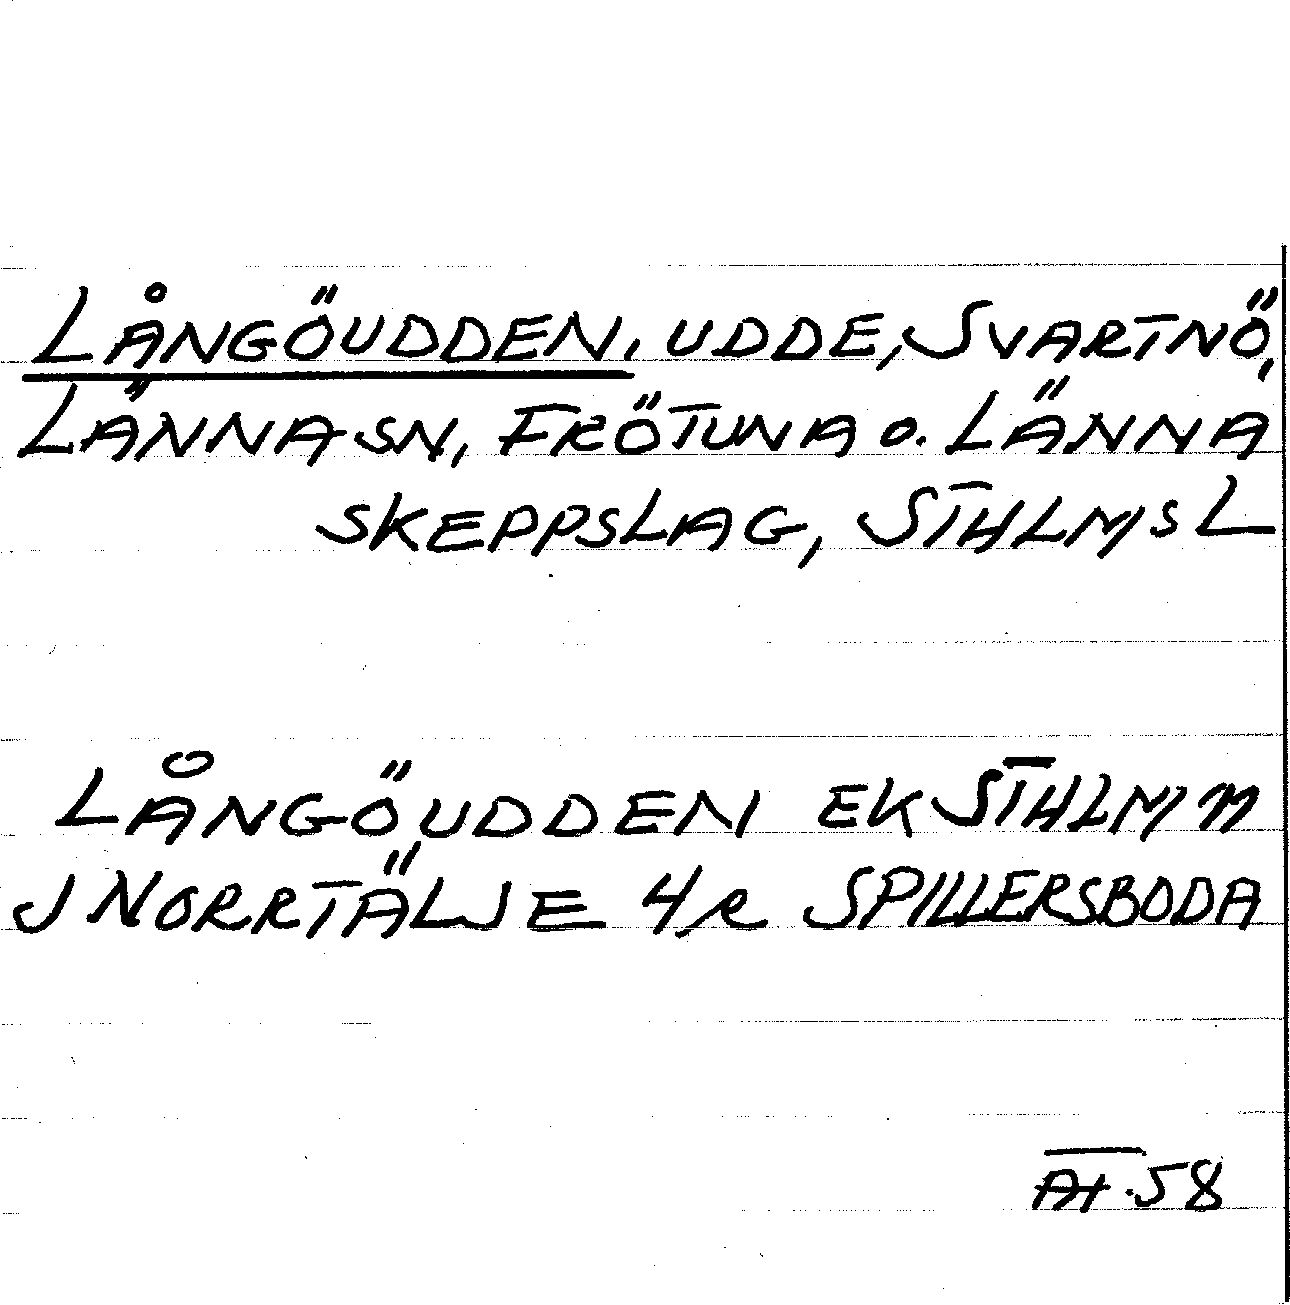 LÅNGÖUDDEN, UDDE, SVARTNÖ,
LÄNNA SN, FRÖTUNA O. LÄNNA
SKEPPSLAG, STHLMS L
LÅNGÖUDDEN EK STHLM
J NORRTÄLJE 4 SPILLERSBODA
58